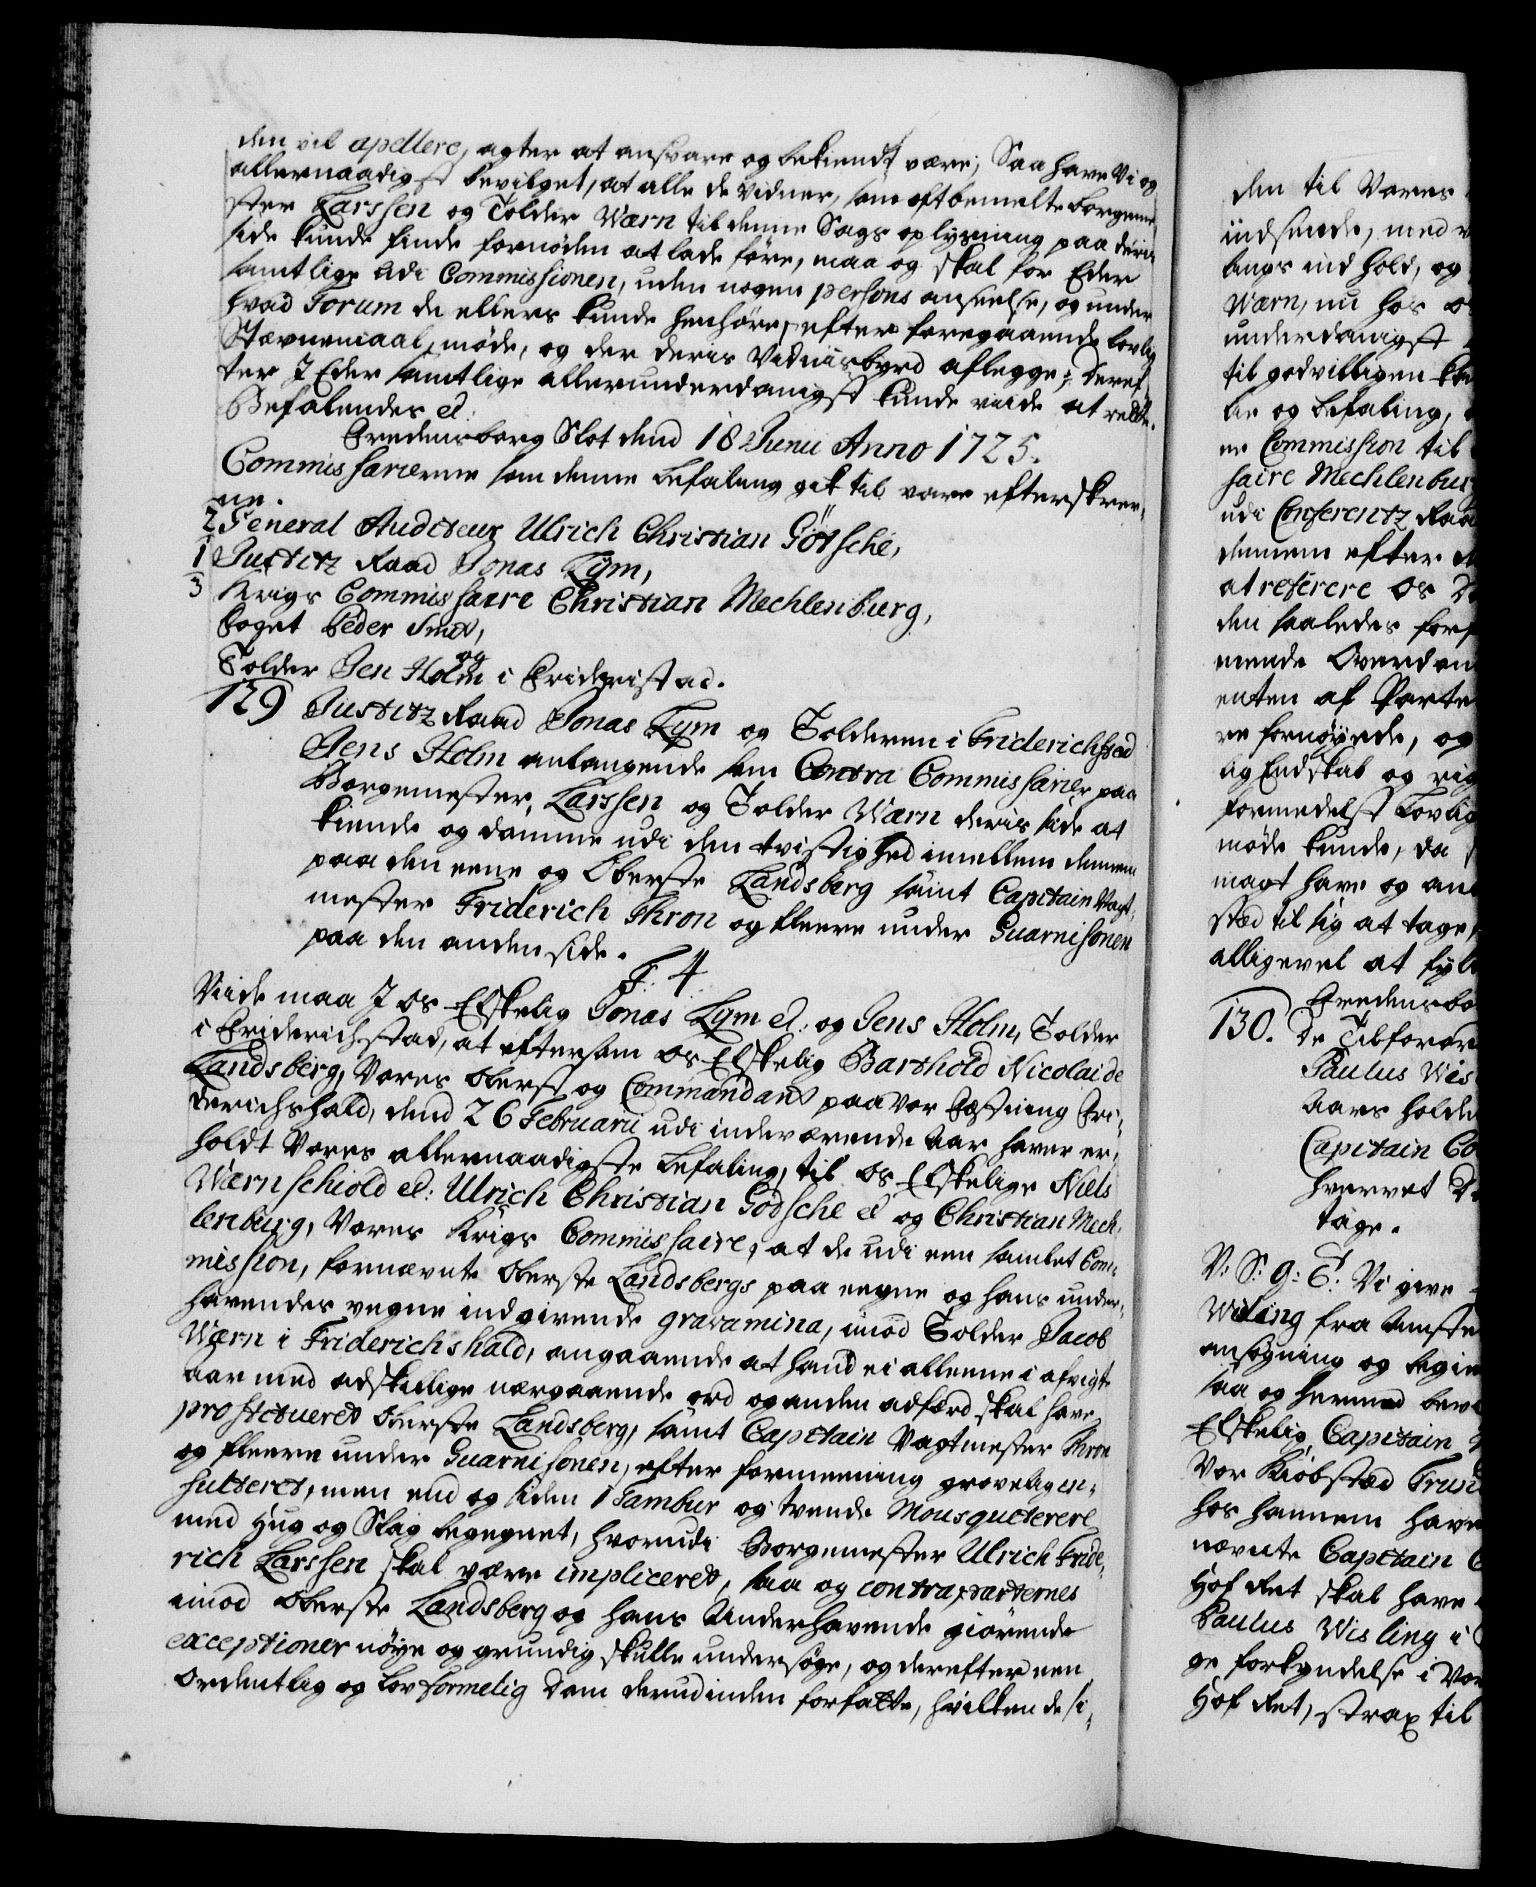 den vil apellere, agter at ansvare og bekiendt være; Saa have Vi og
allernaadigst bevilget, at alle de Vidner, som oftbemelte borgeme-
ster Larssen og Tolder Wærn til denne Sags oplysning paa deris
side kunde finde fornøden at lade føre, maa og skal for Eder
samtlige udi Commissionen, uden nogen persons anseelse, og under
hvad Forum de ellers kunde henhøre, efter foregaaende lovlig
Stævnemaal, møde, og der deris Vidnisbyrd aflegge; Deref-
ter I Eder samtlige allerunderdanigst kunde viide at rette.
Befalendes etc:
Fredensborg Slot dend 18 Junii Anno 1725.
Commissarierne som denne befaling gik til vare efterskrev-
ne.
2 General Auditeur Ulrich Christian Götsche,
1 Justitz Raad Jonas Lÿm,
3 Krigs Commissaire Christian Mechlenburg,
Foget Peder Smit,
og
Tolder Jen Holm i Friderichstad.
129 Justitz Raad Jonas Lÿm og Tolderen i Friderichstad
Jens Holm anlangende som Contra Commissarier paa
Borgemester Larssen og Tolder Wærn deris side at
kiende og dømme udi den tvistighed imellem dennem
paa den eene og Oberste Landsberg samt Capitain Vagt-
mester Friderich Thron og fleere under Guarnisonen
paa den anden side.
F: 4
Viide maa I os Elskelig Jonas Lym etc: og Jens Holm, Tolder
i Friderichstad, at eftersom os Elskelig Barthold Nicolai de
Landsberg, Vores Oberst og Commandant paa vor Fæstning Fri-
derichshald, dend 26 Februarii udi indeværende Aar haver er-
holdt Vores allernaadigste befaling, til os Elskelige Niels
Wærnschiold etc: Ulrich Christian Gödsche etc og Christian Mech-
lenburg, Vores Krigs Commissaire, at de udi een samlet Com-
mission, fornævnte Oberste Landsbergs paa egne og hans under-
havendes vegne indgivende gravamina, imod Tolder Jacob
Wærn i Friderichshald, angaaende at hand ei alleene i afvigte
aar med adskillige nærgaaende ord og anden adfærd skal have
prostitueret Oberste Landsberg, samt Capitain Vagtmester Thron
og fleere under Guarnisonen, efter formeening grovelig in-
sulteret, men end og siden 1 Tambur og tvende Mousqueterere
med Hug og Slag begegnet, hvorudi Borgemester Ulrich Fride-
rich Larssen skal være impliceret, saa og contraparternes
imod Oberste Landsberg og hans Underhavende giørende
exceptioner nøye og grundig skulle undersøge, og derefter een
Ordentlig og lovformelig Dom derudinden forfatte, hvilken de si-
den til Vores
indsende, med
langs ind hold, og
Wærn, nu hos
underdanigst
til godvilligen
lie og befaling,
en Commission til
saire Mechlenburg
udi Conferentz Raad
dennem efter
at referere os
den saaledes
meende
enten af Parte
re fornøyede, og
lig Endskab og
formedelst Lovlig
møde kunde, da
magt have og
sted til sig at tage,
alligevel at
Fredensbo
130. De Tilforor
Paulus Wis
aars holde
Capitain
hvervet
tage.
V: S: g: T: Vi give
Wisling fra
ansøgning og begi
saa og hermed
Elskelig Capitain
Vor Kiøbsted Trun
hos hannem have
nævnte Capitain
Hof Ret skal have
Paulus Wisling i
ge forkyndelse i Vor
Hof Ret, strax til